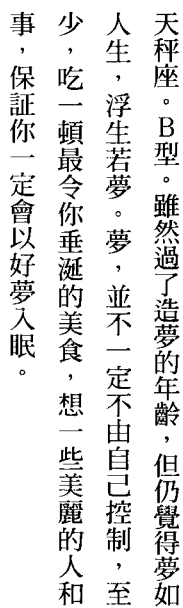 天秤座。B型。雖然過了造夢的年齡，但仍覺得夢如
人生，浮生若夢。夢，並不一定不由自己控制，至
少，吃一頓最令你垂涎的美食，想一些美麗的人和
事，保証你一定會以好夢入眠。